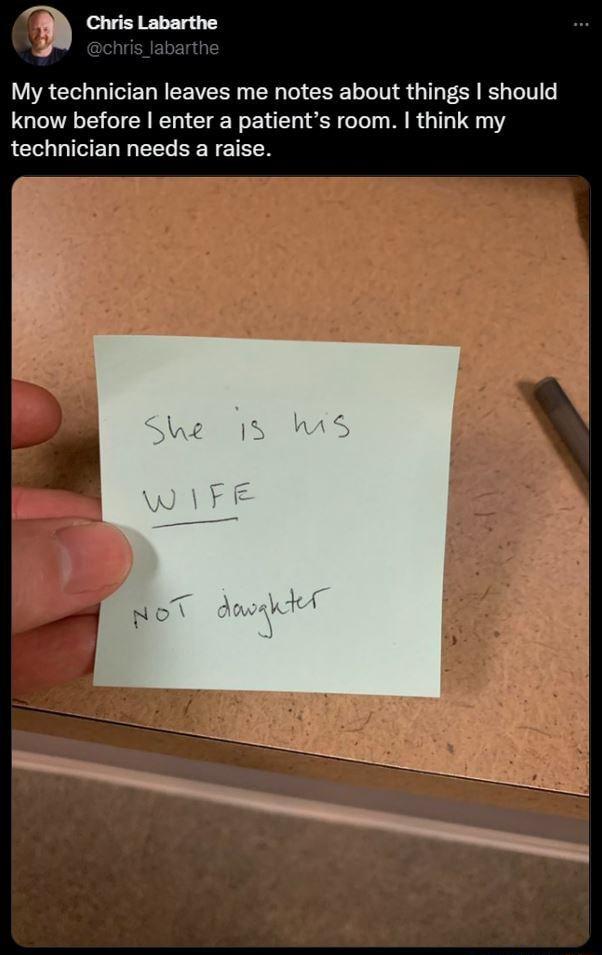 Chris Labarthe
@chris_labarthe
My technician leaves me notes about things I should
know before I enter a patient’s room. I think my
technician needs a raise.
She is his
WIFE
NOT daughter